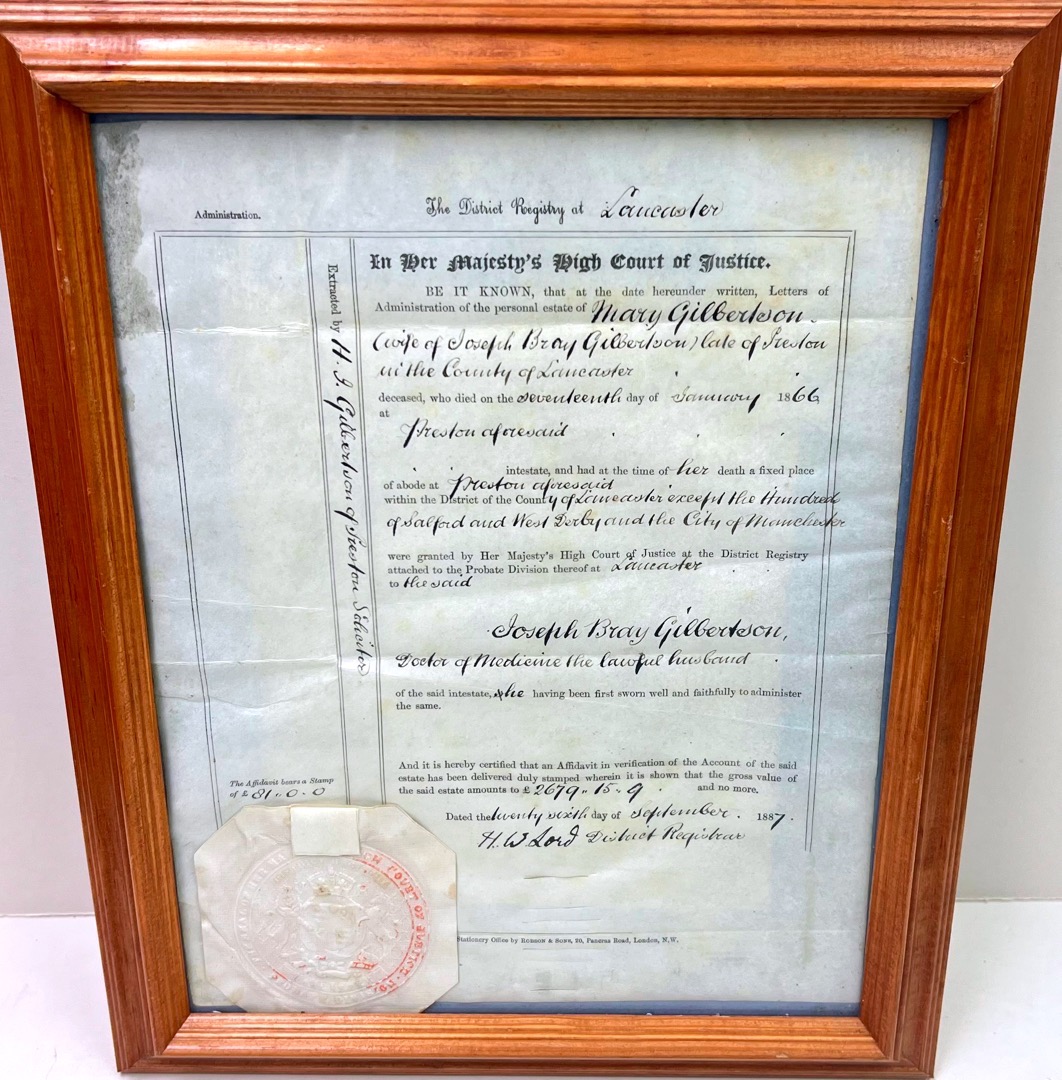 Administration.
The District Registry at Lancaster
In Her Majesty's High Court of Justice.
BE IT KNOWN, that at the date hereunder written, Letters of
Administration of the personal estate of Mary Gilbertson
(wife of Joseph Bray Gilbertson) late of Preston
in the County of Lancaster
deceased, who died on the seventeenth day of January 1866
at
Preston aforesaid
intestate, and had at the time of her death a fixed place
of abode at Preston aforesaid
within the District of the County of Lancaster except the Hundred
of Salford and West Derby and the City of Manchester
were granted by Her Majesty's High Court of Justice at the District Registry
attached to the Probate Division thereof at Lancaster
to the said
Joseph Bray Gilbertson,
Doctor of Medicine the lawful husband
of the said intestate, he having been first sworn well and faithfully to administer
the same.
And it is hereby certified that an Affidavit in verification of the Account of the said
estate has been delivered duly stamped wherein it is shown that the gross value of
the said estate amounts to £ 2679 " 15 " 9 and no more.
Dated the twenty sixth day of September. 1887.
H. W Lord District Registrar
Extracted by H. J. Gilbertson of Preston Solicitor
The Affidavit bears a Stamp
of £ 81 " 0 " 0
COURT OF JUSTICE
Stationery Office by ROBSON & SONS, 20, Pancras Road, London, N.W.